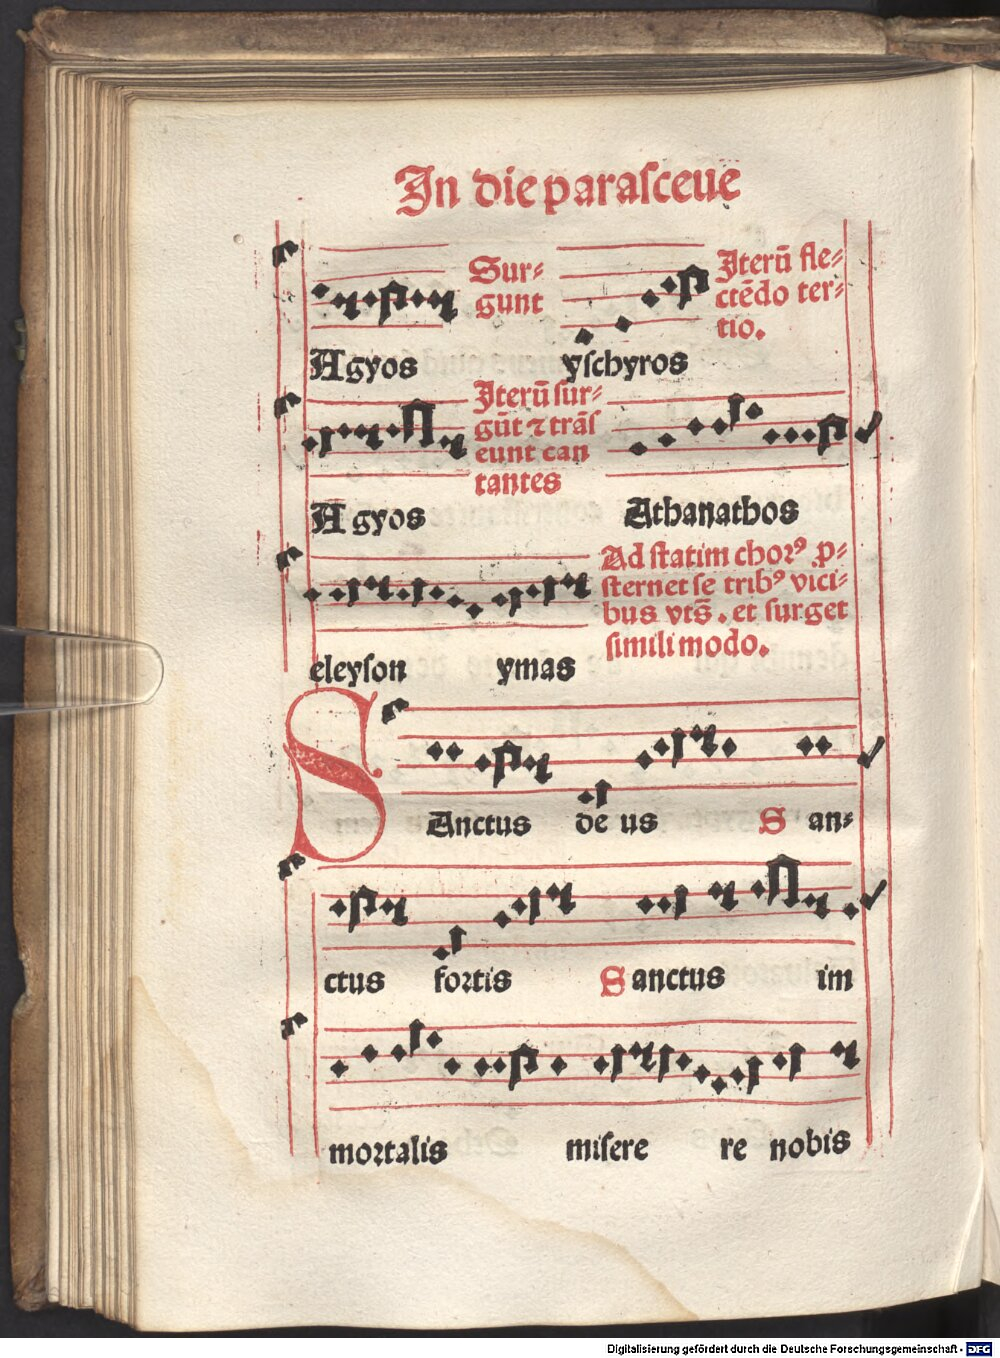 In die parasceue
Sur⸗
gunt
Iterū fle⸗
ctēdo ter⸗
tio.
Agyos yschyros
Iterū sur⸗
gūt ⁊ trās
eunt can
tantes
Agyos Athanathos
Ad statim chorꝰ ꝓ⸗
sternet se tribꝰ vici⸗
bus vts̄. et surget
simili modo.
eleyson ymas
SAnctus de us S an⸗
ctus fortis Sanctus im
mortalis misere re nobis
Digitalisierung gefördert durch die Deutsche Forschungsgemeinschaft - DFG